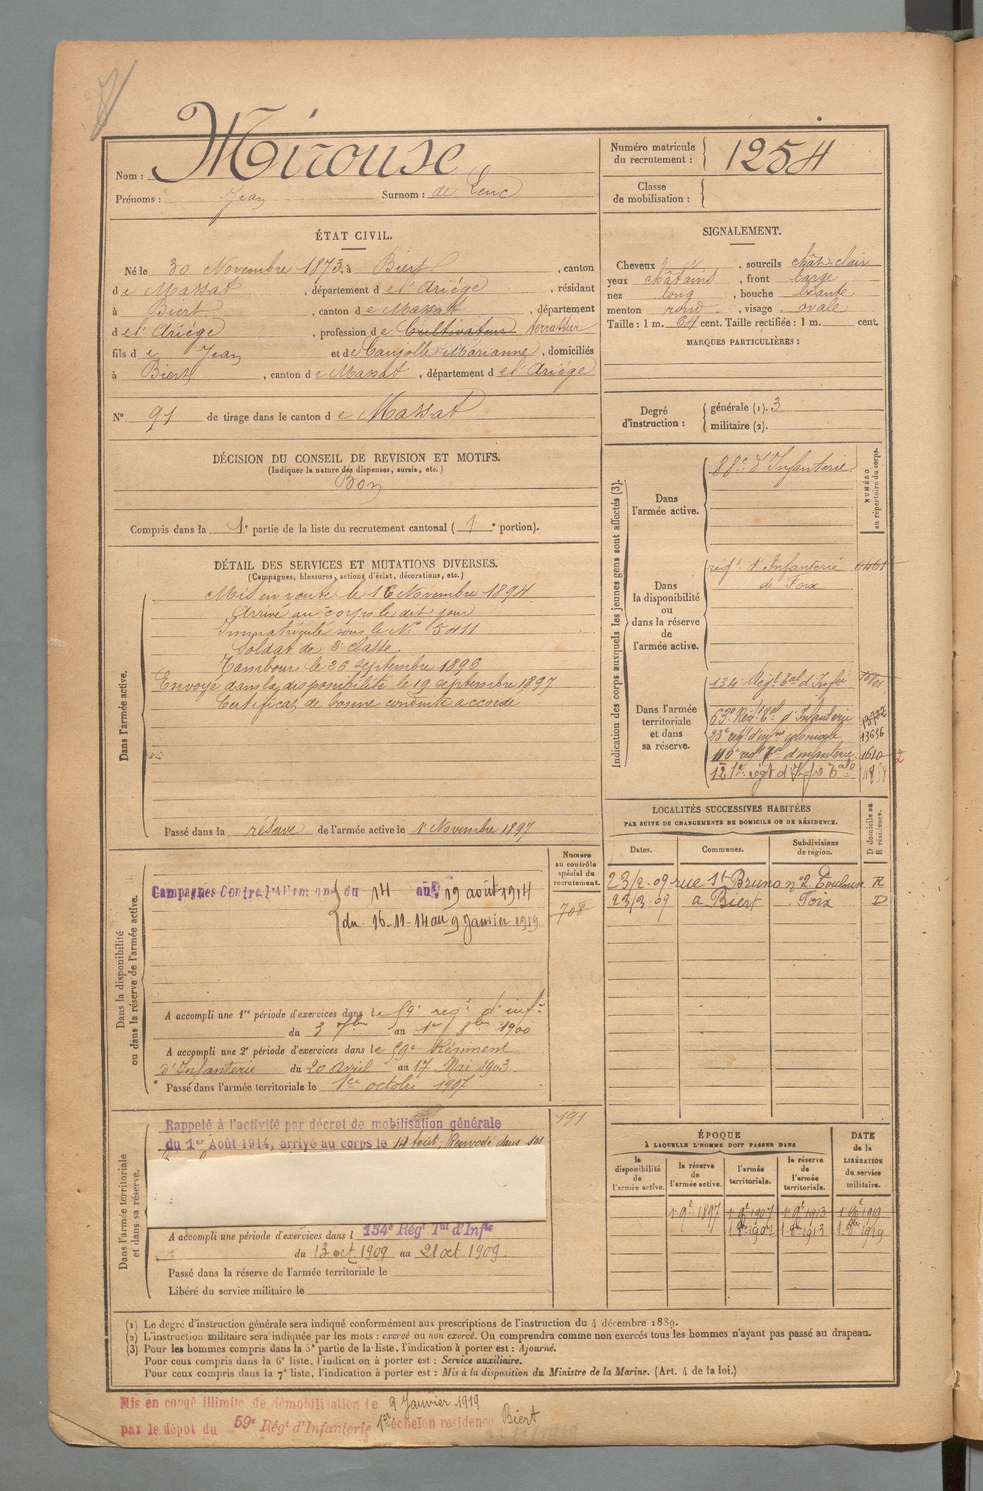 Nom : Mirouse
Prénoms : Jean Surnom : de Lenc
Numéro matricule du recrutement : 1254
Classe de mobilisation :
ÉTAT CIVIL.
Né le 30 Novembre 1873, à Biert, canton
de Massat, département de l'Ariège, résidant
à Biert, canton de Massat, département
de l'Ariège, profession de Cultivateur terrassier
fils de Jean et de Caujolle Marianne, domiciliés
à Biert, canton de Massat, département de l'Ariège
N° 91 de tirage dans le canton de Massat
SIGNALEMENT.
Cheveux, sourcils chât. clair
yeux châtains, front large
nez long, bouche
menton rond, visage ovale
Taille : 1 m. 64 cent. Taille rectifiée : 1 m. cent.
MARQUES PARTICULIÈRES :
Degré d'instruction : générale (1). 3
militaire (2).
DÉCISION DU CONSEIL DE REVISION ET MOTIFS.
(Indiquer la nature des dispenses, sursis, etc.)
Bon
Compris dans la 1e partie de la liste du recrutement cantonal (1e portion).
DÉTAIL DES SERVICES ET MUTATIONS DIVERSES.
(Campagnes, blessures, actions d'éclat, décorations, etc.)
Dans l'armée active.
Mis en route le 16 Novembre 1894
Arrivé au corps le dit jour
Immatriculé sous le N° 5411
Soldat de 2e classe.
Tambour le 26 septembre 1896
Envoyé dans la disponibilité le 19 septembre 1897
Certificat de bonne conduite accordé
Passé dans la réserve de l'armée active le 1er Novembre 1897
Indication des corps auxquels les jeunes gens sont affectés (3).
NUMÉRO au répertoire du corps.
Dans l'armée active.
88e d'Infanterie
Dans la disponibilité ou dans la réserve de l'armée active.
régt. d'Infanterie
de Foix
Dans l'armée territoriale et dans sa réserve.
134e Régt Tal d'Infie
63e Rég. Tal d'Infanterie 13702
23e régt d'inf.rie coloniale 13656
110e régt Tal d'infanterie 1610
121e régt d'Inf Tale
Dans la disponibilité ou dans la réserve de l'armée active.
Numéro au contrôle spécial du recrutement.
708
Campagnes Contre l'Allemagne du 14 au 19 août 1914
du 16-11-14 au 9 Janvier 1919
A accompli une 1re période d'exercices dans le 59e régt d'inf.
du 3 7bre au 1900
A accompli une 2e période d'exercices dans le 59e Régiment
d'Infanterie du 20 Avril au 17 Mai 1903
Passé dans l'armée territoriale le 1er octobre 1907
LOCALITÉS SUCCESSIVES HABITÉES
PAR SUITE DE CHANGEMENTS DE DOMICILE OU DE RÉSIDENCE.
Dates. Communes. Subdivisions de région. D domicile ou R résidence.
23/2-09 rue St Bruno n°2 Toulouse R
23/3-09 à Biert Foix D
Dans l'armée territoriale et dans sa réserve.
191
Rappelé à l'activité par décret de mobilisation générale
du 1er Août 1914, arrivé au corps le 14 août, Renvoyé dans ses
A accompli une période d'exercices dans l 134e Régt Tal d'Infie
du 13 oct 1909 au 21 oct 1909.
Passé dans la réserve de l'armée territoriale le
Libéré du service militaire le
ÉPOQUE
À LAQUELLE L'HOMME DOIT PASSER DANS
DATE de la LIBÉRATION du service militaire.
la disponibilité de l'armée active. la réserve de l'armée active. l'armée territoriale. la réserve de l'armée territoriale.
1 9e 1897 1 9e 1907 1 9e 1913 1 9e 1919
1 8e 1907 1 8e 1913 1 8e 1919
(1) Le degré d'instruction générale sera indiqué conformément aux prescriptions de l'instruction du 4 décembre 1889.
(2) L'instruction militaire sera indiquée par les mots : exercé ou non exercé. On comprendra comme non exercés tous les hommes n'ayant pas passé au drapeau.
(3) Pour les hommes compris dans la 5e partie de la liste, l'indication à porter est : Ajourné.
Pour ceux compris dans la 6e liste, l'indication à porter est : Service auxiliaire.
Pour ceux compris dans la 7e liste, l'indication à porter est : Mis à la disposition du Ministre de la Marine. (Art. 4 de la loi.)
Mis en congé illimité de démobilisation le 9 Janvier 1919
par le dépot du 59e Régt d'Infanterie 1er échelon résidence Biert